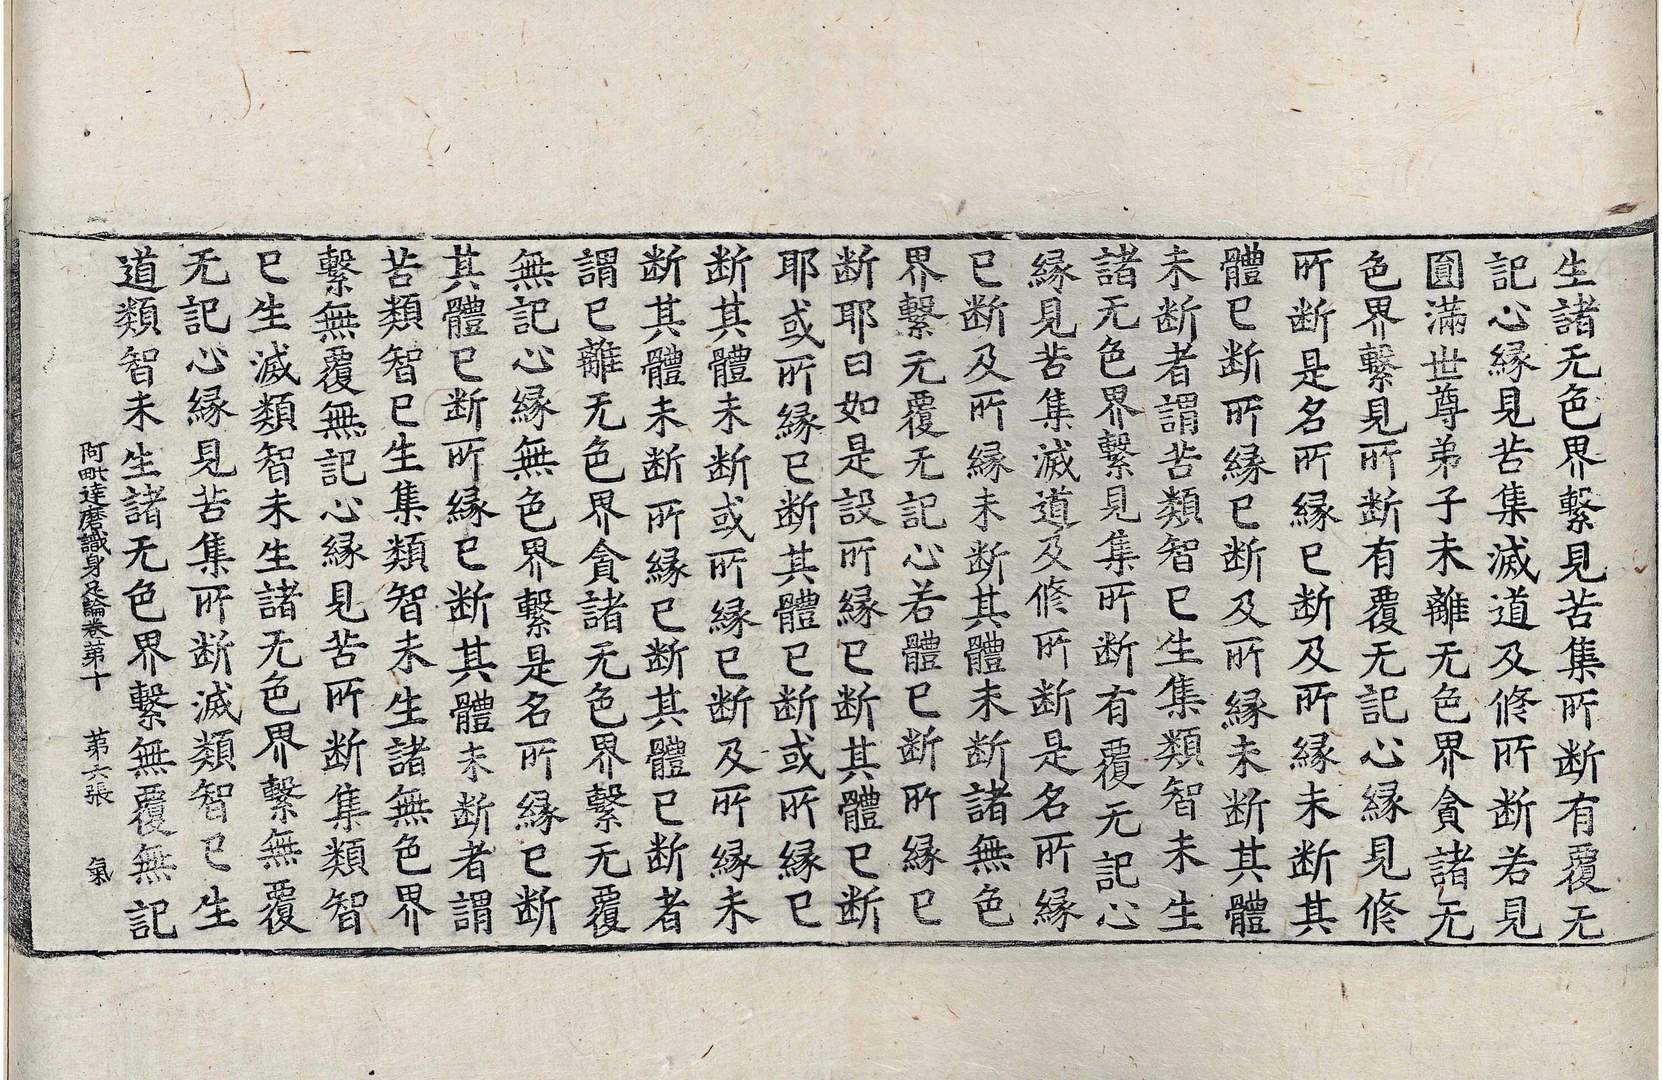 生諸无色界繫見苦集所断有覆无
記心縁見苦集滅道及修所断若見
圎滿世尊弟子未離无色界貪諸无
色界繫見所断有覆无記心縁見修
所断是名所縁已断及所縁未断其
體已断所縁已断及所縁未断其體
未断者謂苦類智已生集類智未生
諸无色界繫見集所断有覆无記心
縁見苦集滅道及修所断是名所縁
已断及所縁未断其體未断諸無色
界繫无覆无記心若體已断所縁已
断耶曰如是設所縁已断其體已断
耶或所縁已断其體已断或所縁已
断其體未断或所縁已断及所縁未
断其體未断所縁已断其體已断者
謂已離无色界貪諸无色界繫无覆
無記心縁無色界繫是名所縁已断
其體已断所縁已断其體未断者謂
苦類智已生集類智未生諸無色界
繫無覆無記心縁見苦所断集類智
已生滅類智未生諸无色界繫無覆
无記心縁見苦集所断滅類智已生
道類智未生諸无色界繫無覆無記
阿毗達磨識身足論卷第十 第六張 氣